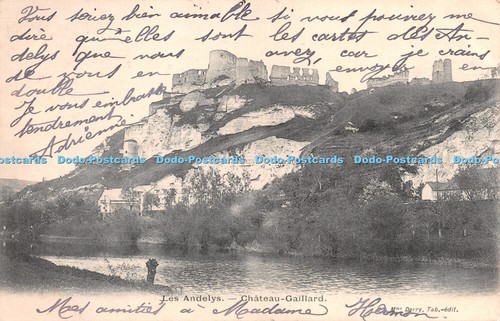 Vous seriez bien aimable si vous pouvez me
dire qu'elles sont les cartes des An-
delys que vous avez, car je crains
de vous en envoyer en
double.
Je vous embrasse
tendrement.
Adrienne.
Dodo-Postcards Dodo-Postcards Dodo-Postcards Dodo-Postcards Dodo-Postcards
Les Andelys. — Château-Gaillard.
Mme Tab.-édit.
Mes amitiés à Madame